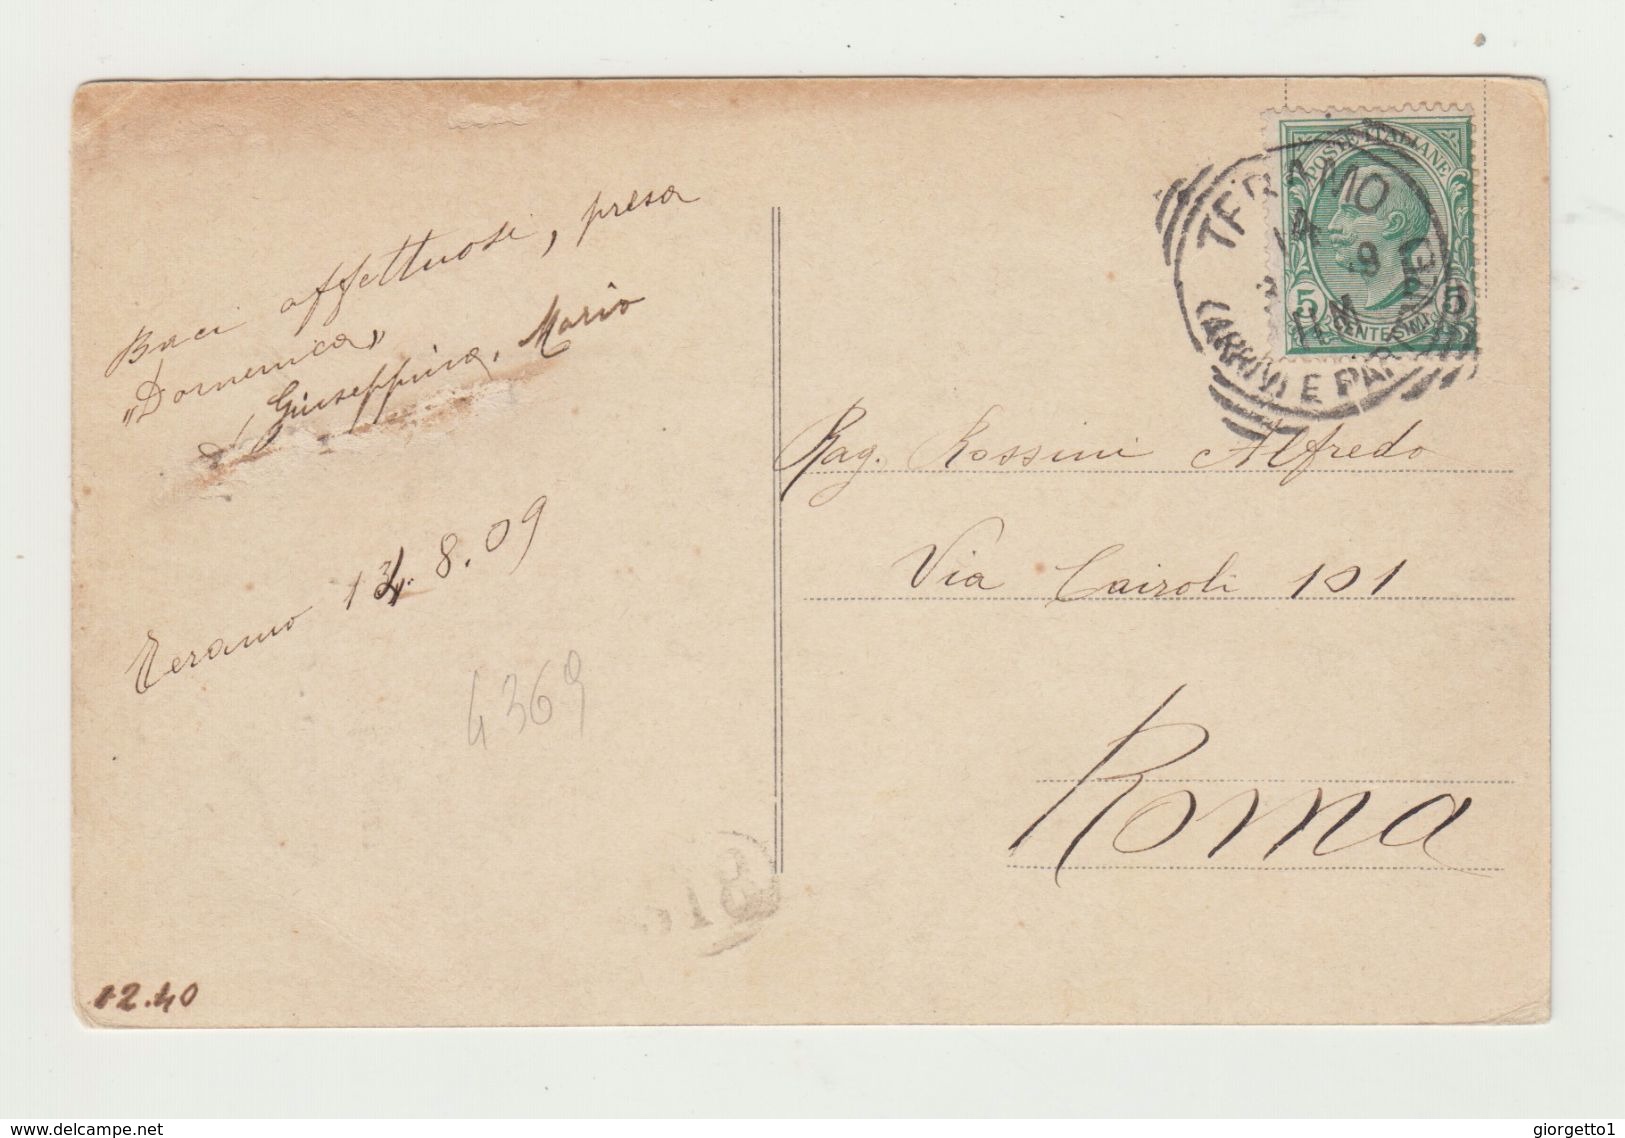 Baci affettuosi, presa
"Domenica"
Giuseppina, Mario
Teramo 14.8.09
4369
12.40
POSTE ITALIANE
5 CENTESIMI 5
TERAMO
14 8
(ARRIVI E PARTENZE)
Rag. Rossini Alfredo
Via Cairoli 101
Roma
www.delcampe.net
giorgetto1